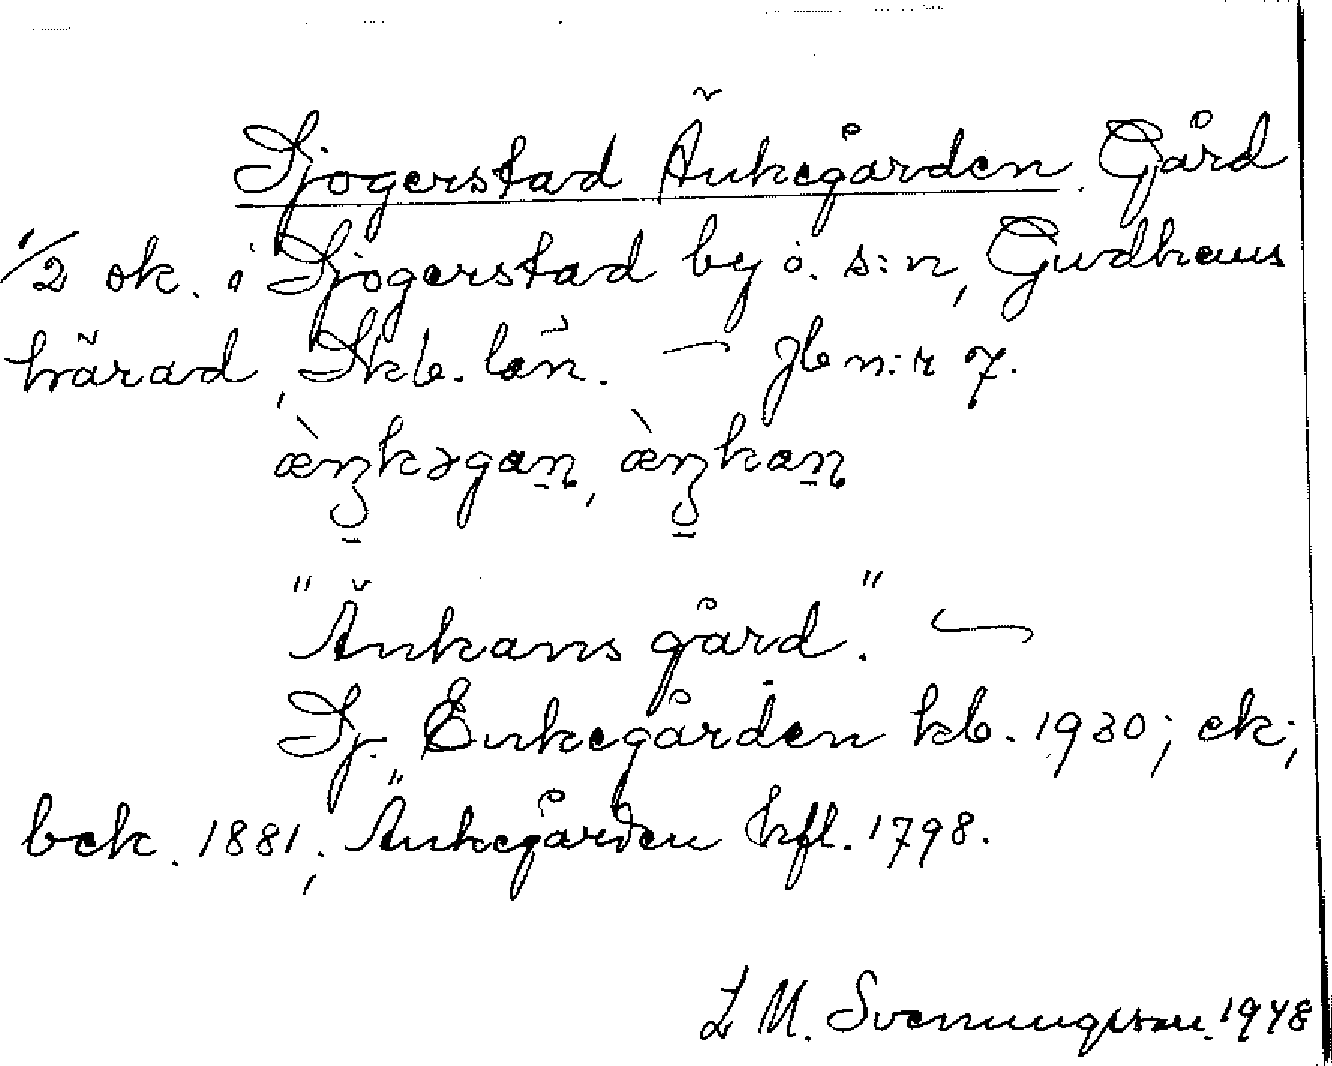 Sjogerstad Änkegården. Gård
1/2 ok. i Sjogerstad by o. s:n, Gudhems
härad, Skb. län. — Jb n:r 7.
æ̀ŋkəgaɳ, æ̀ŋkaɳ
"Änkans gård." —
Sj. Enkegården kb. 1930; ek;
bek. 1881; Änkegården hfl. 1798.
L M. Svenungsson. 1948